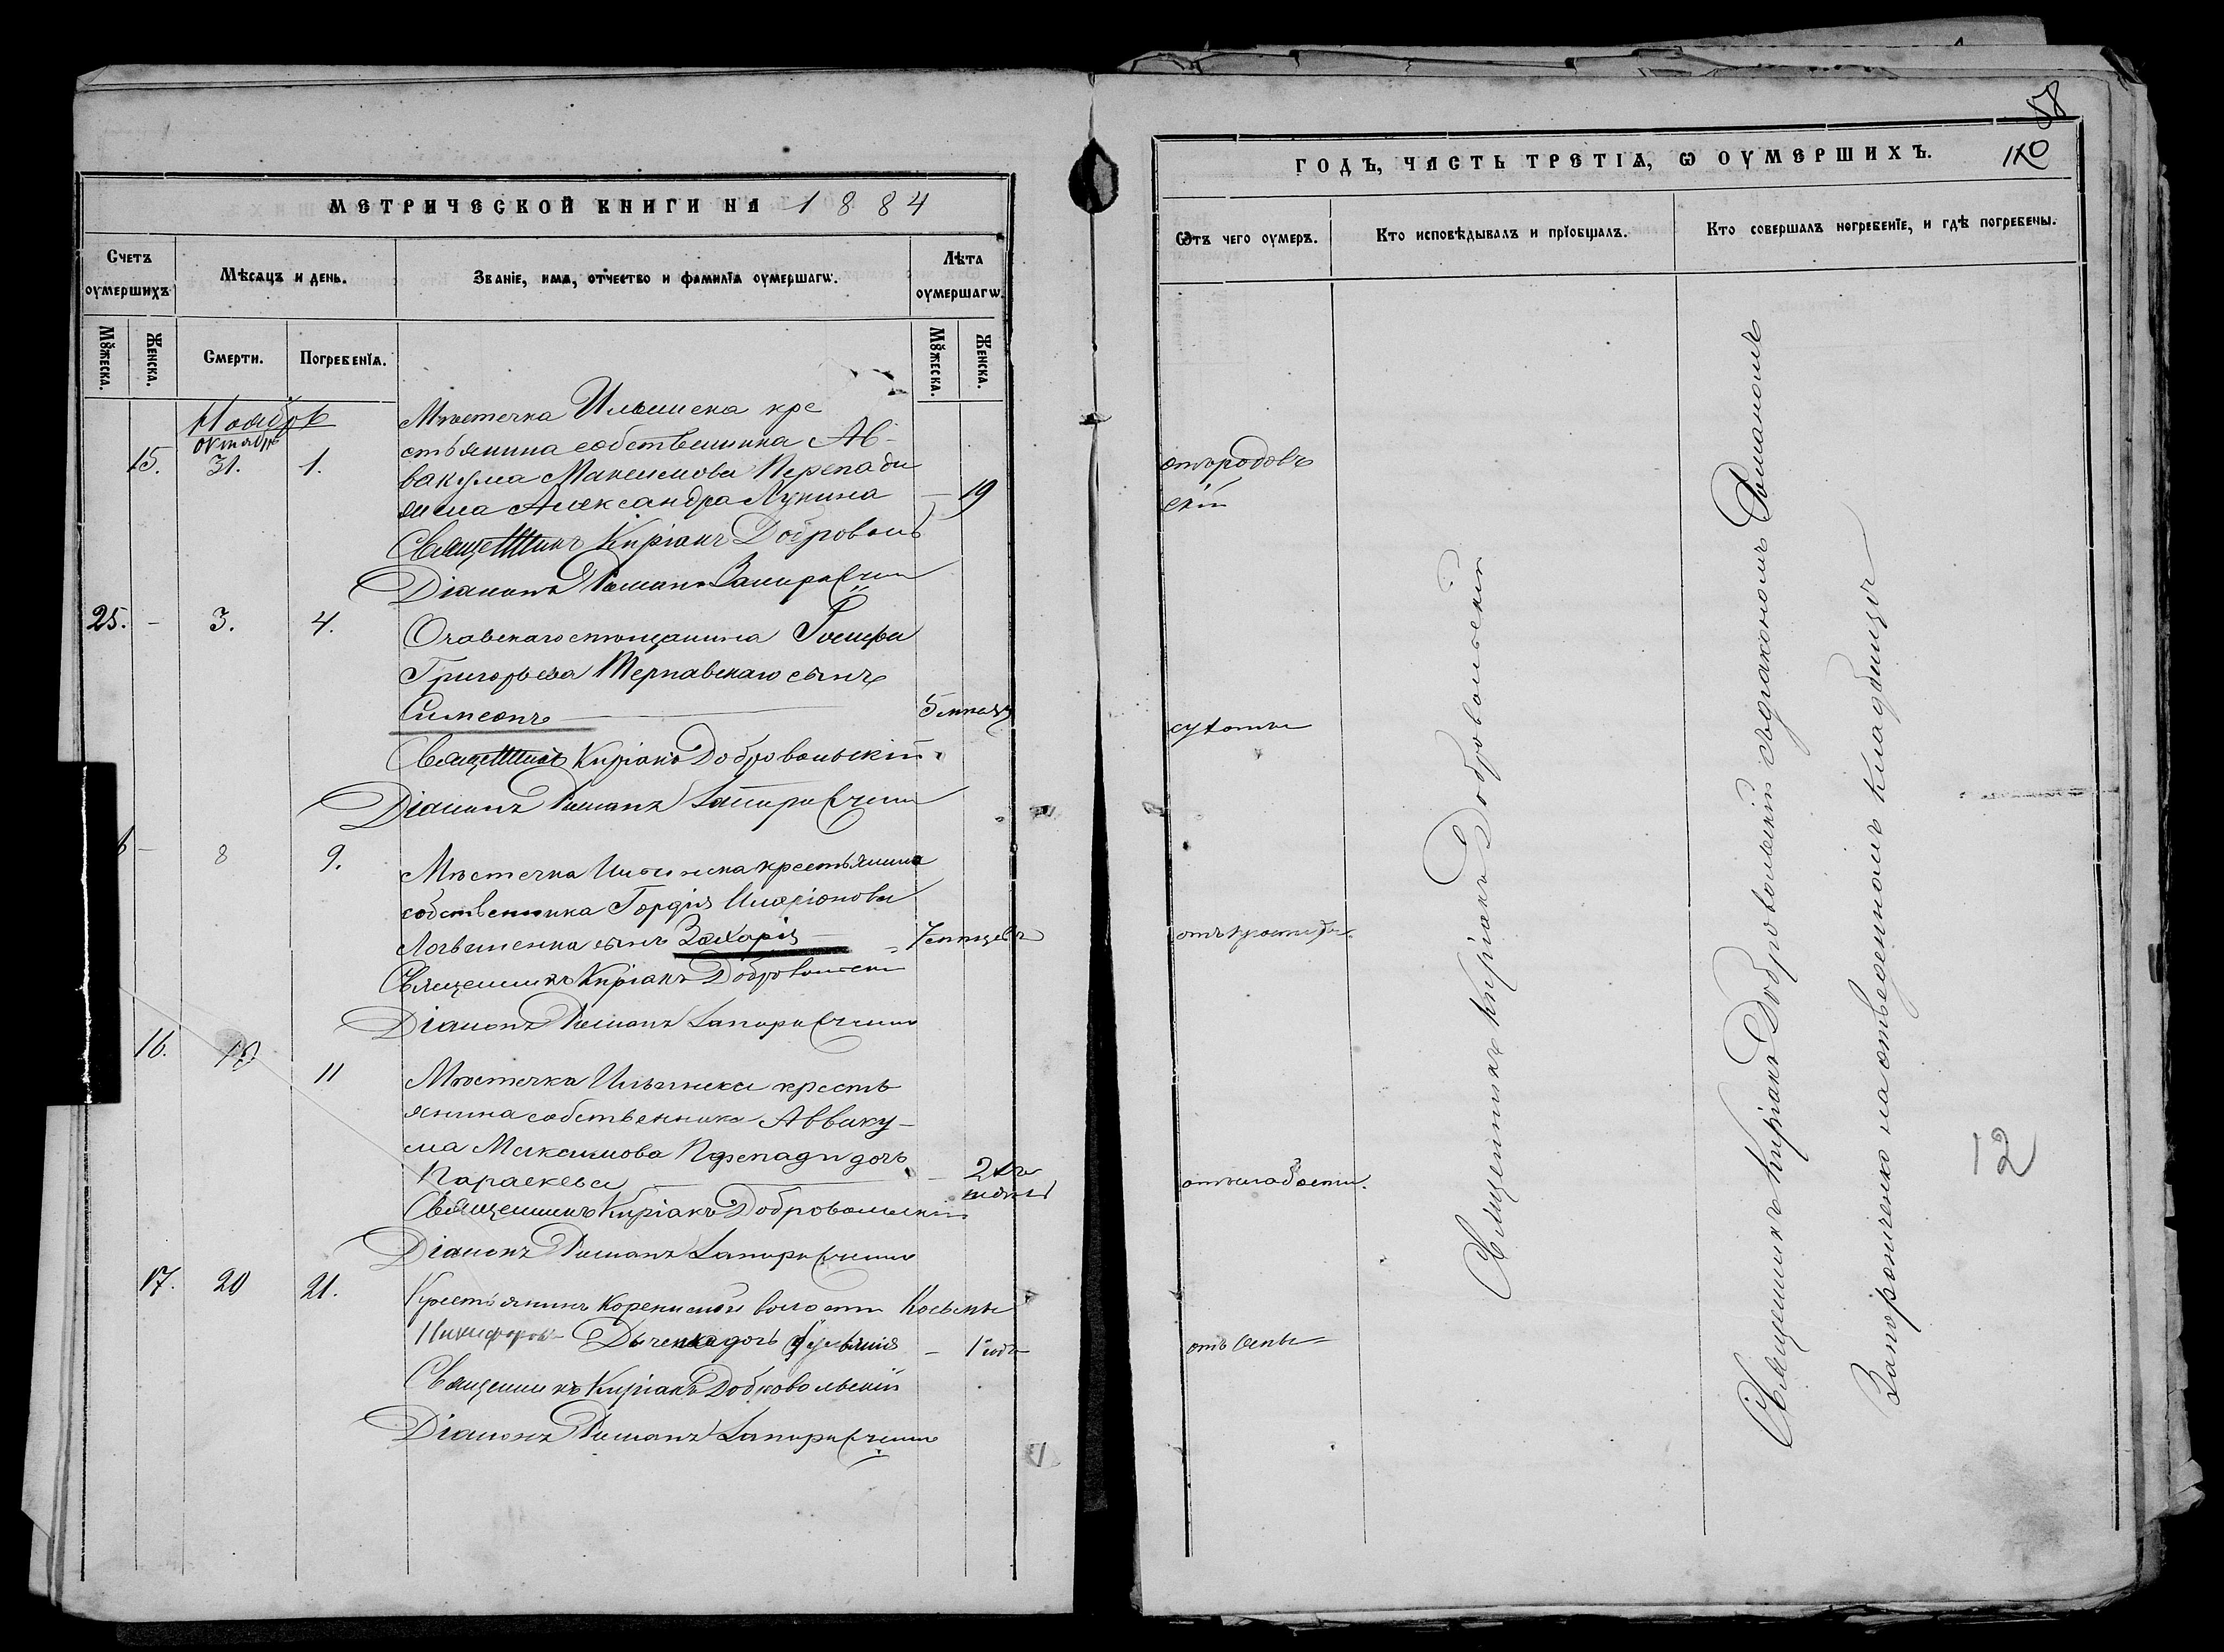 МЕТРИЧЕСКОЙ КНИГИ НА 1884
Счетъ оумершихъ
Мѣсяцъ и день.
Званіе, имя, отчество и фамилія оумершагѡ.
Лѣта оумершагѡ.
Мꙋжеска.
Женска.
Смерти.
Погребенія.
Мꙋжеска.
Женска.
Ноябрь
октября
15. 31. 1.
Мѣстечка Ильинска кре
стьянина собственника Ав-
вакума Максимова Перепади
жена Александра Лукина — 19
Священникъ Киріакъ Добровол
Діаконъ Романъ
25. — 3. 4.
мѣщанина Іосифа
Григорьева Тернавскаго сынъ
Симеонъ 5 мѣсяц
Священникъ Киріакъ Добровольскій
Діаконъ Романъ
— 8 9.
Мѣстечка Ильинска крестьянина
собственника Гордія Иларіонова
Логвиненка сынъ Захарія 7 мѣсяцевъ
Священникъ Киріакъ Добровольскій
Діаконъ Романъ
16. 10 11
Мѣстечка Ильинска кресть
янина собственника Авваку-
ма Максимова Перепади дочь
Параскева — 2
Священникъ Киріакъ Добровольскій
Діаконъ Романъ
17. 20 21.
Крестьянинъ волости
Никифоров дочь — 1 год
Священникъ Киріакъ Добровольскій
Діаконъ Романъ
58
ГОДЪ, ЧАСТЬ ТРЕТІѦ, Ѡ ОУМЕРШИХЪ.
Ѿтъ чего оумеръ.
Кто исповѣдывалъ и пріобщалъ.
Кто совершалъ погребеніе, и гдѣ погребены.
отъ родовъ
сухоты
отъ слабости.
отъ оспы
Священникъ Киріакъ Добровольскій
Священникъ Киріакъ Добровольскій съ діакономъ Романомъ
на отведенномъ кладбищѣ
12